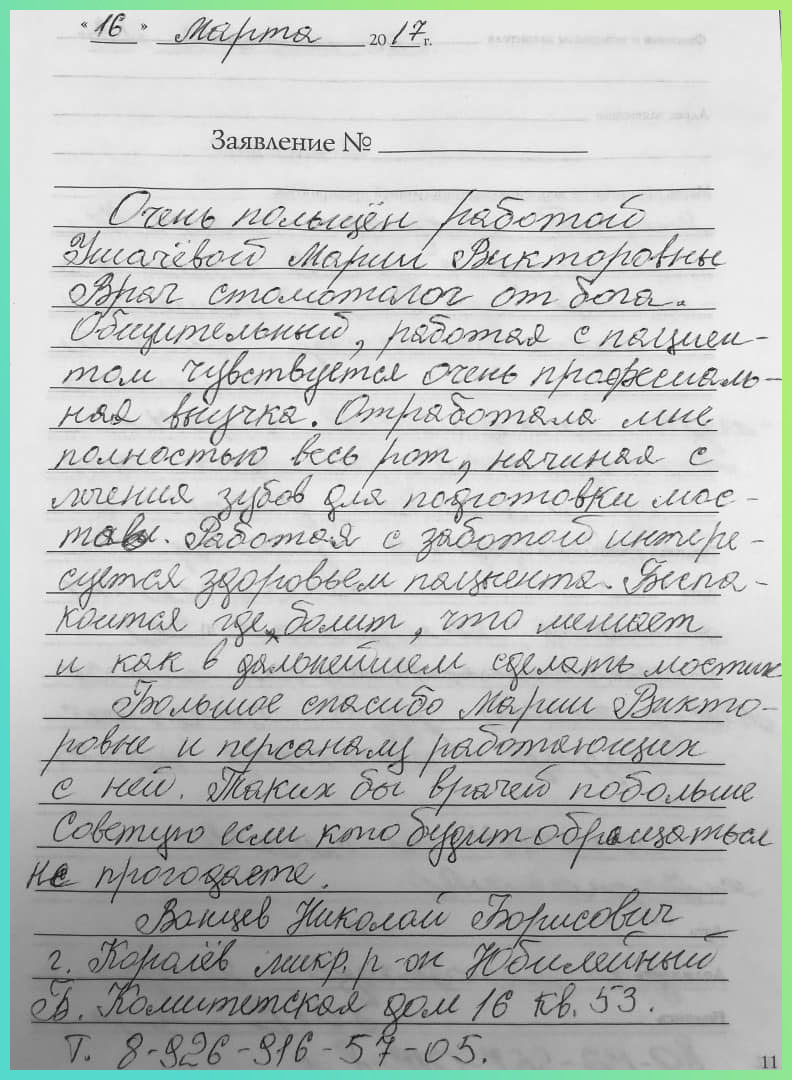 « 16 » Марта 2017 г.
Заявление №
Очень польщён работой
Марии Викторовны
Врач стомоталог от бога.
Общительный, работая с пациен-
том чувствуется очень професиаль-
ная выучка. Отработала мне
полностью весь рот, начиная с
лечения зубов для подготовки мос-
Работая с заботой интере-
суется здоровьем пацыента. Беспа-
коится где болит, что мешает
и как в дальнейшем сделать мостик
Большое спасибо Марии Викто-
ровне и персаналу работающих
с ней. Таких бы врачей побольше
Советую если кто будит обращаться
не прогодаете.
Ванцев Николай Борисович
г. Королёв микр. р-он Юбилейный
Б. Комитетская дом 16 кв. 53.
т. 8-926-916-57-05.
11